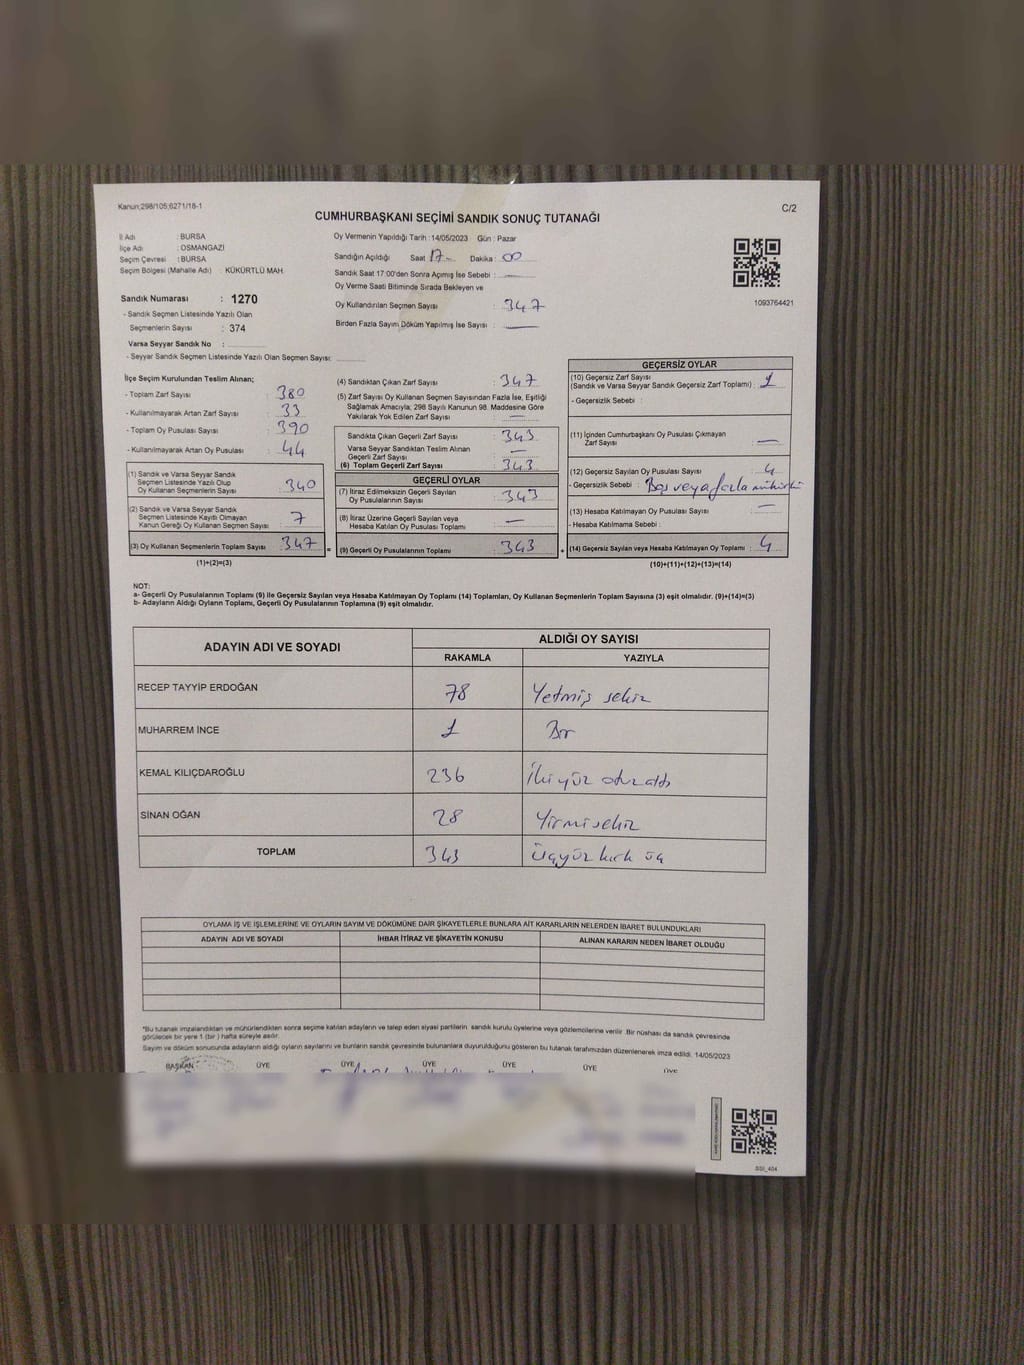 Kanun;298/105;6271/18-1
C/2
CUMHURBAŞKANI SEÇİMİ SANDIK SONUÇ TUTANAĞI
İl Adı : BURSA
İlçe Adı : OSMANGAZİ
Seçim Çevresi : BURSA
Seçim Bölgesi (Mahalle Adı) : KÜKÜRTLÜ MAH.
Sandık Numarası : 1270
- Sandık Seçmen Listesinde Yazılı Olan
Seçmenlerin Sayısı : 374
Varsa Seyyar Sandık No :
- Seyyar Sandık Seçmen Listesinde Yazılı Olan Seçmen Sayısı:
Oy Vermenin Yapıldığı Tarih :14/05/2023 Gün : Pazar
Sandığın Açıldığı Saat 17 Dakika : 00
Sandık Saat 17:00'den Sonra Açımış İse Sebebi : —
Oy Verme Saati Bitiminde Sırada Bekleyen ve
Oy Kullandırılan Seçmen Sayısı : 347
Birden Fazla Sayım Döküm Yapılmış İse Sayısı : —
1093764421
İlçe Seçim Kurulundan Teslim Alınan;
- Toplam Zarf Sayısı : 380
- Kullanılmayarak Artan Zarf Sayısı : 33
- Toplam Oy Pusulası Sayısı : 390
- Kullanılmayarak Artan Oy Pusulası : 44
(1) Sandık ve Varsa Seyyar Sandık
Seçmen Listesinde Yazılı Olup
Oy Kullanan Seçmenlerin Sayısı : 340
(2) Sandık ve Varsa Seyyar Sandık
Seçmen Listesinde Kayıtlı Olmayan
Kanun Gereği Oy Kullanan Seçmen Sayısı : 7
(3) Oy Kullanan Seçmenlerin Toplam Sayısı : 347
(1)+(2)=(3)
(4) Sandıktan Çıkan Zarf Sayısı : 347
(5) Zarf Sayısı Oy Kullanan Seçmen Sayısından Fazla İse, Eşitliği
Sağlamak Amacıyla; 298 Sayılı Kanunun 98. Maddesine Göre
Yakılarak Yok Edilen Zarf Sayısı : —
Sandıkta Çıkan Geçerli Zarf Sayısı : 343
Varsa Seyyar Sandıktan Teslim Alınan
Geçerli Zarf Sayısı : —
(6) Toplam Geçerli Zarf Sayısı : 343
GEÇERLİ OYLAR
(7) İtiraz Edilmeksizin Geçerli Sayılan
Oy Pusulalarının Sayısı : 343
(8) İtiraz Üzerine Geçerli Sayılan veya
Hesaba Katılan Oy Pusulası Toplamı : —
= (9) Geçerli Oy Pusulalarının Toplamı : 343
GEÇERSİZ OYLAR
(10) Geçersiz Zarf Sayısı
(Sandık ve Varsa Seyyar Sandık Geçersiz Zarf Toplamı) : 1
- Geçersizlik Sebebi :
(11) İçinden Cumhurbaşkanı Oy Pusulası Çıkmayan
Zarf Sayısı : —
(12) Geçersiz Sayılan Oy Pusulası Sayısı : 4
- Geçersizlik Sebebi : Boş veya fazla mühürlü
(13) Hesaba Katılmayan Oy Pusulası Sayısı : —
- Hesaba Katılmama Sebebi :
+ (14) Geçersiz Sayılan veya Hesaba Katılmayan Oy Toplamı : 4
(10)+(11)+(12)+(13)=(14)
NOT:
a- Geçerli Oy Pusulalarının Toplamı (9) ile Geçersiz Sayılan veya Hesaba Katılmayan Oy Toplamı (14) Toplamları, Oy Kullanan Seçmenlerin Toplam Sayısına (3) eşit olmalıdır. (9)+(14)=(3)
b- Adayların Aldığı Oyların Toplamı, Geçerli Oy Pusulalarının Toplamına (9) eşit olmalıdır.
ADAYIN ADI VE SOYADI
ALDIĞI OY SAYISI
RAKAMLA YAZIYLA
RECEP TAYYİP ERDOĞAN 78 Yetmiş sekiz
MUHARREM İNCE 1 Bir
KEMAL KILIÇDAROĞLU 236 İkiyüz otuz altı
SİNAN OĞAN 28 Yirmisekiz
TOPLAM 343 Üçyüz kırk üç
OYLAMA İŞ VE İŞLEMLERİNE VE OYLARIN SAYIM VE DÖKÜMÜNE DAİR ŞİKAYETLERLE BUNLARA AİT KARARLARIN NELERDEN İBARET BULUNDUKLARI
ADAYIN ADI VE SOYADI İHBAR İTİRAZ VE ŞİKAYETİN KONUSU ALINAN KARARIN NEDEN İBARET OLDUĞU
*Bu tutanak imzalandıktan ve mühürlendikten sonra seçime katılan adayların ve talep eden siyasi partilerin sandık kurulu üyelerine veya gözlemcilerine verilir. Bir nüshası da sandık çevresinde
görülecek bir yere 1 (bir ) hafta süreyle asılır.
Sayım ve döküm sonucunda adayların aldığı oyların sayılarını ve bunların sandık çevresinde bulunanlara duyurulduğunu gösteren bu tutanak tarafımızdan düzenlenerek imza edildi. 14/05/2023
BAŞKAN ÜYE ÜYE ÜYE ÜYE ÜYE ÜYE
SSI_404